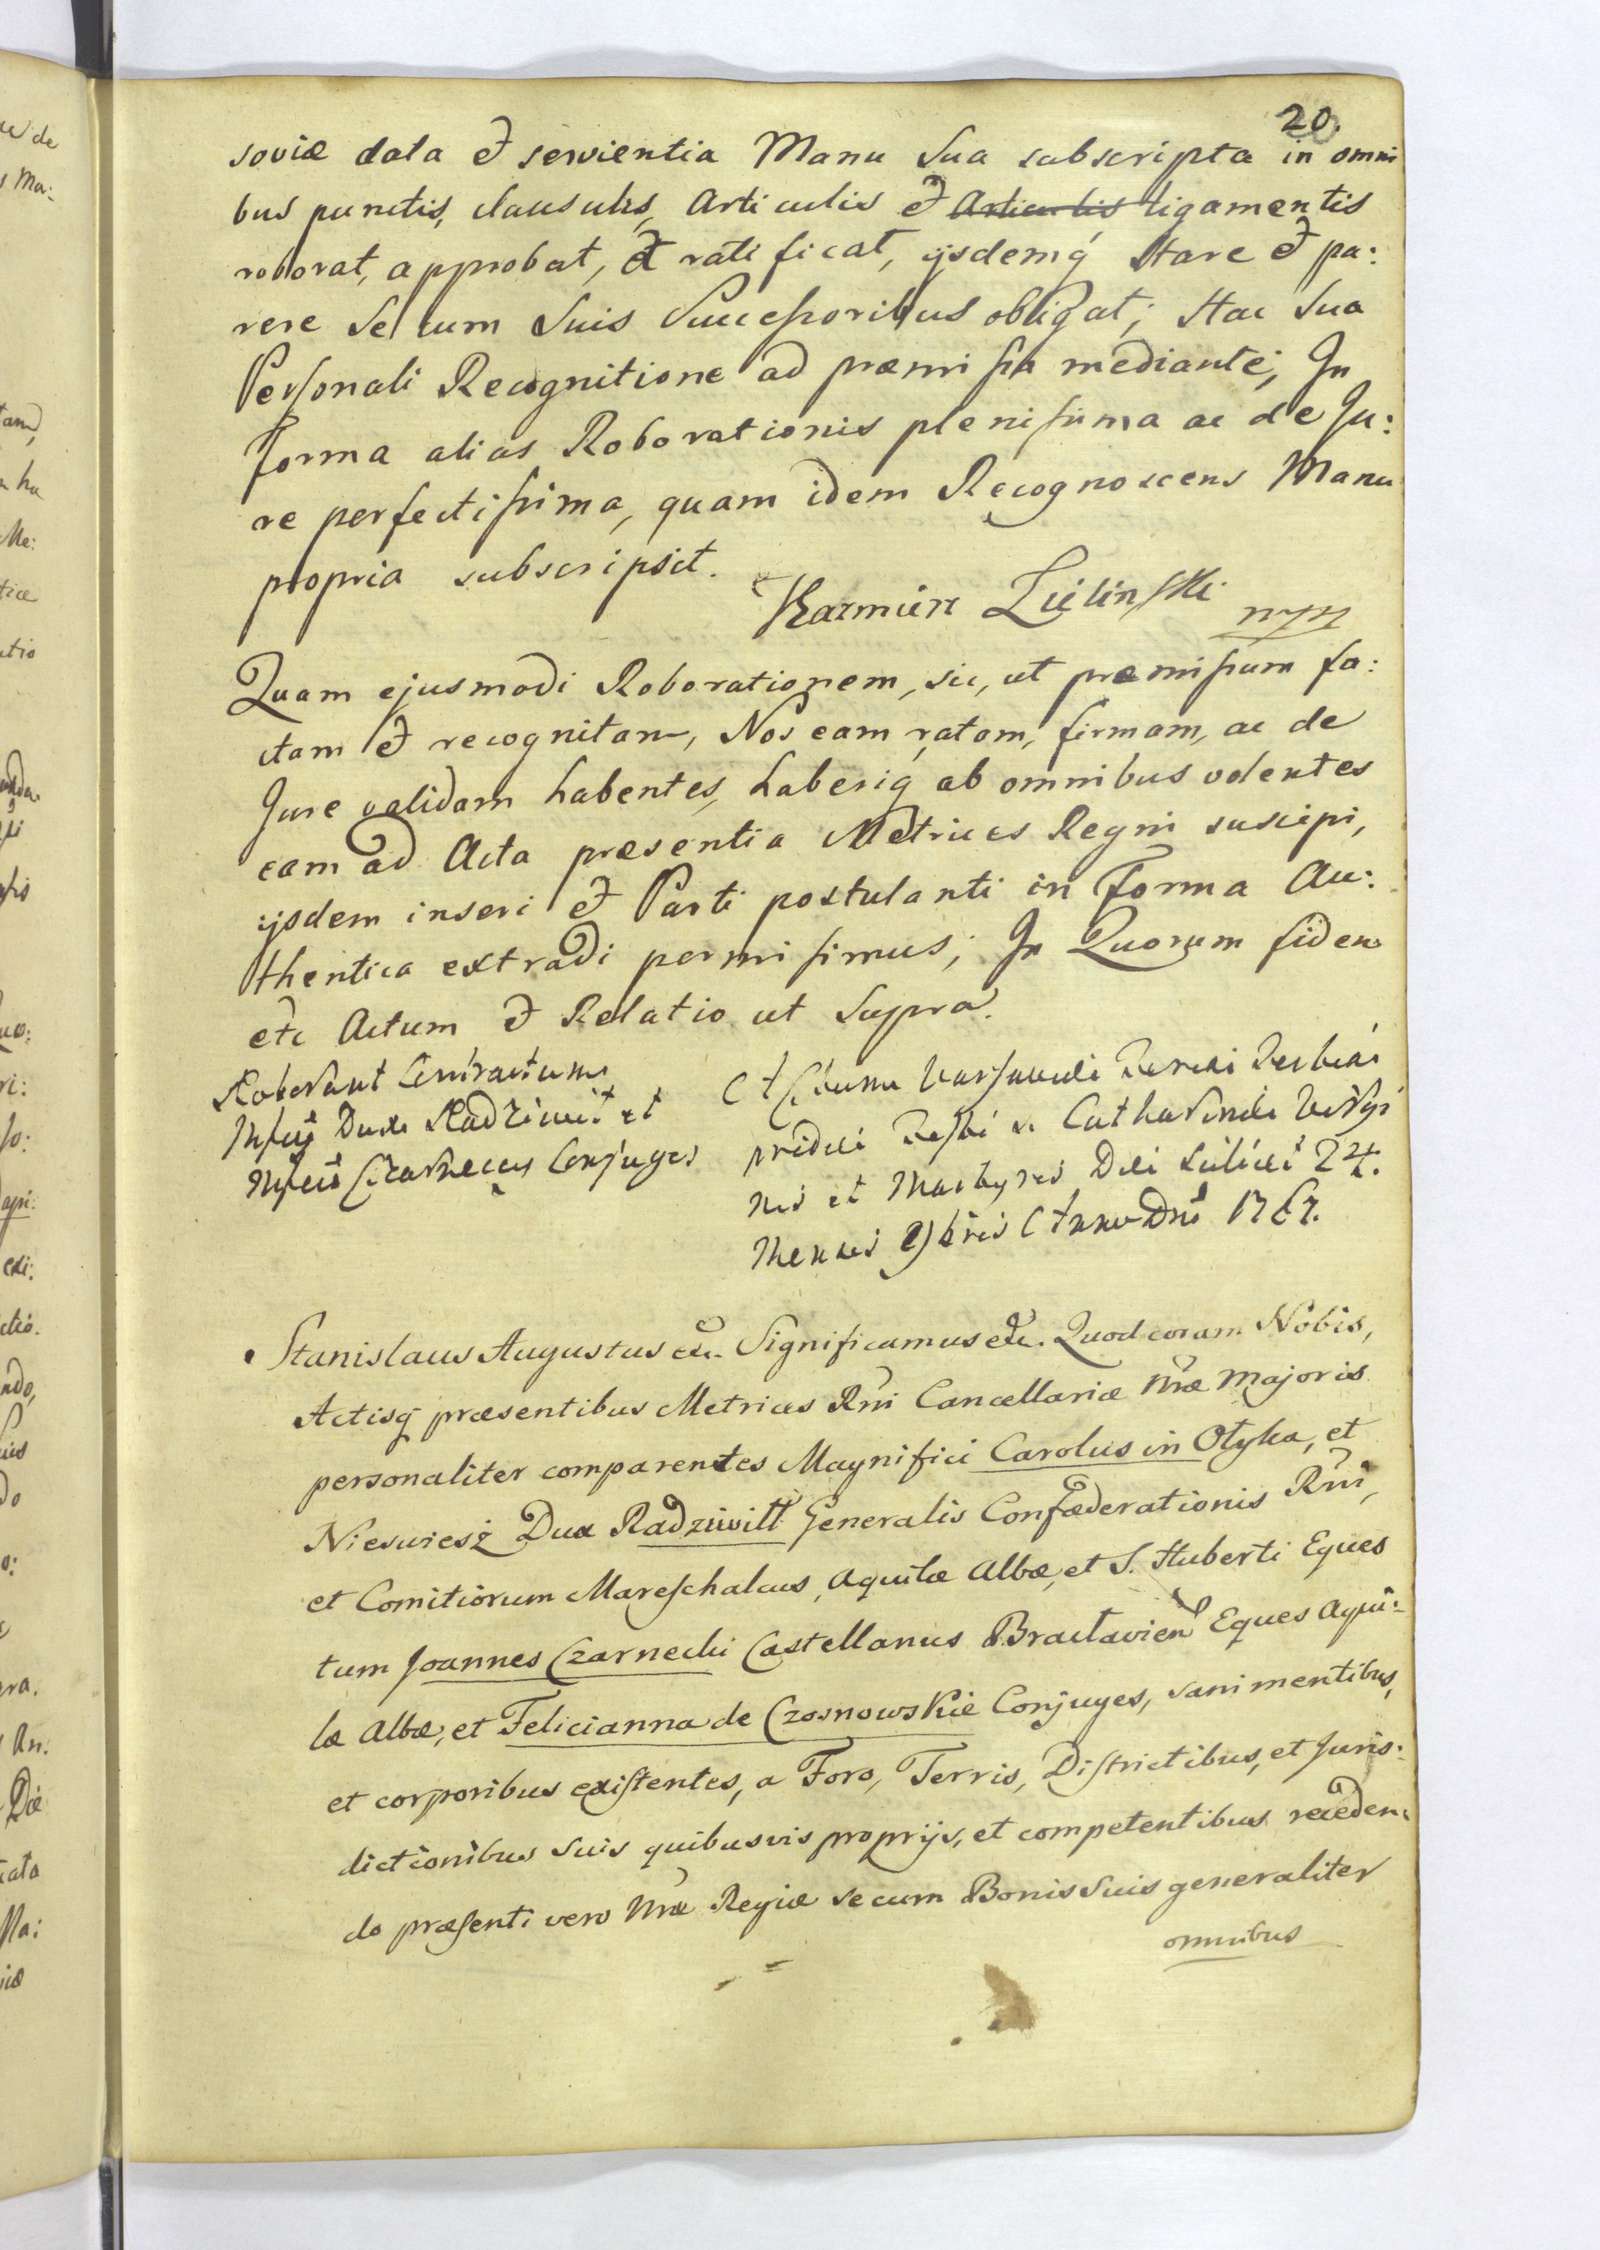 20.
soviæ data et servientia Manu Sua subscripta in omni
bus punctis, clausulis, Articulis et Articulis ligamentis
roborat, approbat, et ratificat, ijsdemq́ Stare et pa:
rere Se cum Suis Succeſsoribus obligat; Hac Sua
Perſonali Recognitione ad præmiſsa mediante; In
Forma alias Roborationis pleniſsima ac de Ju:
re perfectiſsima, quam idem Recognoscens Manu
propria subscripsit.
Kazmierz Zielinſki mpp
Quam ejusmodi Roborationem, sic, ut præmiſsum fa:
ctam et recognitam, Nos eam ratam, firmam, ac de
Jure validam habentes, haberiq́ ab omnibus volentes
eam ad Acta præsentia Metrices Regni suscipi,
ijsdem inseri et Parti postulanti in Forma Au:
thentica extradi permiſimus; In Quorum fidem
etc Actum et Relatio ut Supra.
Roborant Contractum
Dux Radziwił et
Czarneccy Conjuges
Actum Varsaviæ Feria
pridie Festi S. Catharinæ Virgi
nis et Martyris Die 24.
Mensis 9bris Anno Dni 1767.
Stanislaus Augustus etc. Significamus etc. Quod coram Nobis,
Actisq́ præsentibus Metrices Rni Cancellariæ Nræ Majoris
personaliter comparentes Magnifici Carolus in Ołyka, et
Nieswiesż Dux Radziwiłł Generalis Confæderationis Rni,
et Comitiorum Mareſchalcus, Aquilæ Albæ, et S. Huberti Eques
tum Joannes Czarnecki Castellanus Bracłavien Eques Aqui:
læ Albæ, et Felicianna de Czosnowskie Conjuges, sani mentibus,
et corporibus exiſtentes, a Foro, Terris, Diſtrictibus, et Juris:
dictionibus Suis quibusvis proprijs, et competentibus receden:
do præſenti vero Nræ Regiæ se cum Bonis Suis generaliter
omnibus